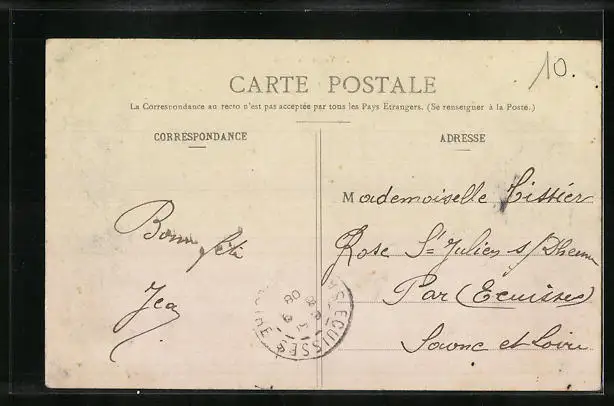 10.
CARTE POSTALE
La Correspondance au recto n'est pas acceptée par tous les Pays Etrangers. (Se renseigner à la Poste.)
CORRESPONDANCE
ADRESSE
Mademoiselle Tissier
Rose St Julien s/Dheune
Par (Ecuisses)
Saone et Loire
Bonne fête
Jea
ECUISSES
08